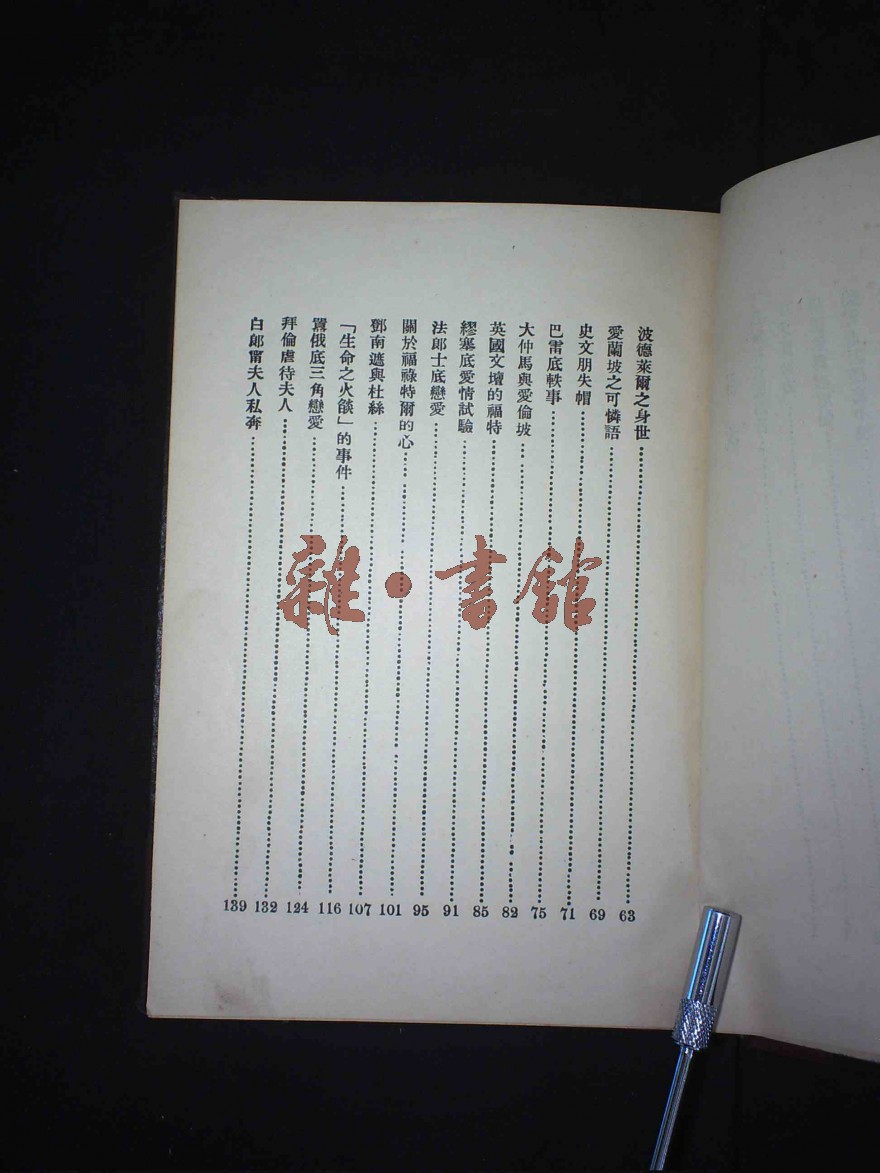 波德萊爾之身世……63
愛蘭坡之可憐語……69
史文朋失帽……71
巴雷底軼事……75
大仲馬與愛倫坡……82
英國文壇的福特……85
繆塞底愛情試驗……91
法郎士底戀愛……95
關於福祿特爾的心……101
鄧南遮與杜絲……107
「生命之火燄」的事件……116
囂俄底三角戀愛……124
拜倫虐待夫人……132
白郎甯夫人私奔……139
雜·書館